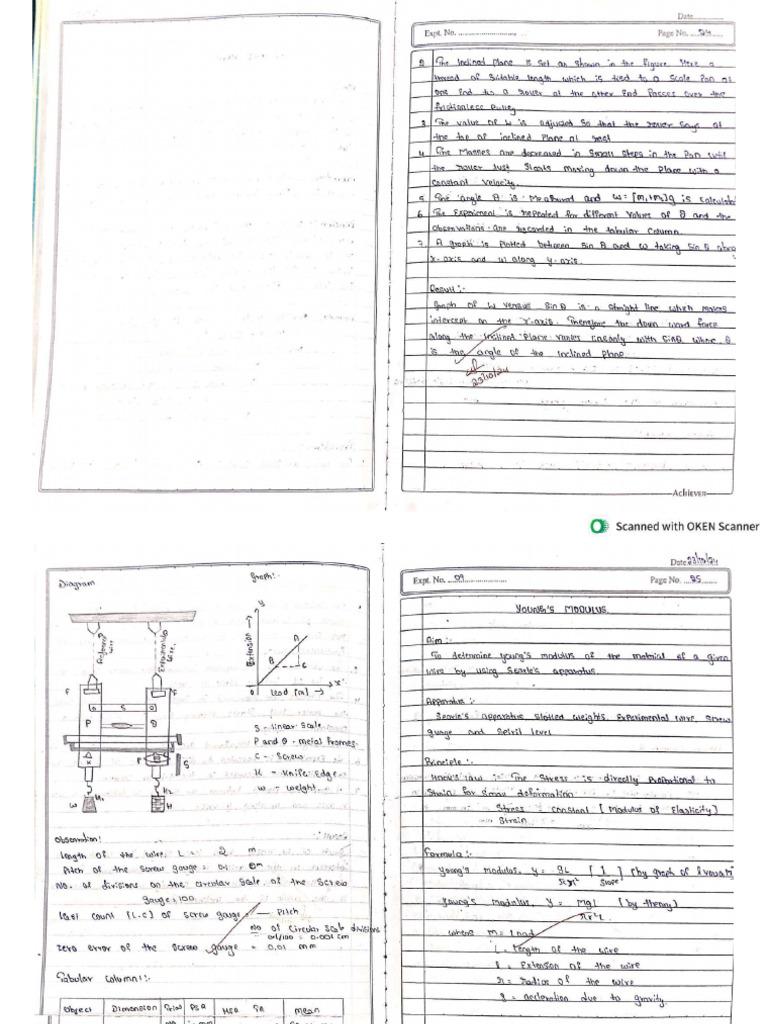 Date
Expt. No.
Page No. 24
2 The Inclined Plane is set as shown in the figure. Here a
thread of suitable length which is tied to a Scale Pan at
one End to a roller at the other End Passes over the
frictionless Pulley.
3 The value of W is adjusted so that the roller says at
the top of inclined Plane at rest
4 The Masses are decreased in small steps in the Pan until
the roller Just Starts moving down the Plane with a
constant velocity.
5 The angle θ is Measured and w = [m1+m2]g is calculat
6 The Experiment is repeated for different values of θ and the
observations are recorded in the tabular column.
7. A graph is plotted between sin θ and w taking Sin θ along
x-axis and w along y-axis.
Result :-
Graph of W versus Sin θ is a straight line which makes
intercept on the x-axis. Therefore the down ward force
along the inclined Plane varies with Sinθ where θ
is the angle of the inclined plane.
23/10/24
ACHIEVER
Scanned with OKEN Scanner
Diagram
Graph:-
Reference wire
Experimental wire
Extension →
Y
A
B
C
O
Load [m] →
x
F
F
S
P
Q
S
H1
H2
W
H
S - linear Scale
P and Q - metal Frames
C - Screw
K - Knife Edge
W - Weight.
Observation:
Length of the wire, L = 2 m
Pitch of the screw gauge =
No. of divisions on the circular Scale of the Screw
gauge = 100
Last count [L.C] of screw gauge = Pitch
No of Circular Scale divisions
0.1/100 = 0.001 cm
Zero error of the Screw gauge = 0.01 mm
Tabular column:-
Object Dimension Trial PSR HSR TR mean
Date 23/10/24
Expt. No. 09
Page No. 25
YOUNG'S MODULUS
Aim:-
To determine young's modulus of the material of a given
wire by using Searle's apparatus.
Apparatus:-
Searle's apparatus slotted weights, Experimental wire, screw
guage and Spirit level
Principle:-
Hook's law is The Stress is directly Proportional to
Strain for small deformation
Stress = constant [Modulus of Elasticity]
Strain
Formula:-
Young's modulus, y = gL/πr² [1/slope] [by graph of l
Young's modulus, y = mgl [by theory]
πr²l
where m = load
L = length of the wire
l = Extension of the wire
r = radius of the wire
g = acceleration due to gravity.